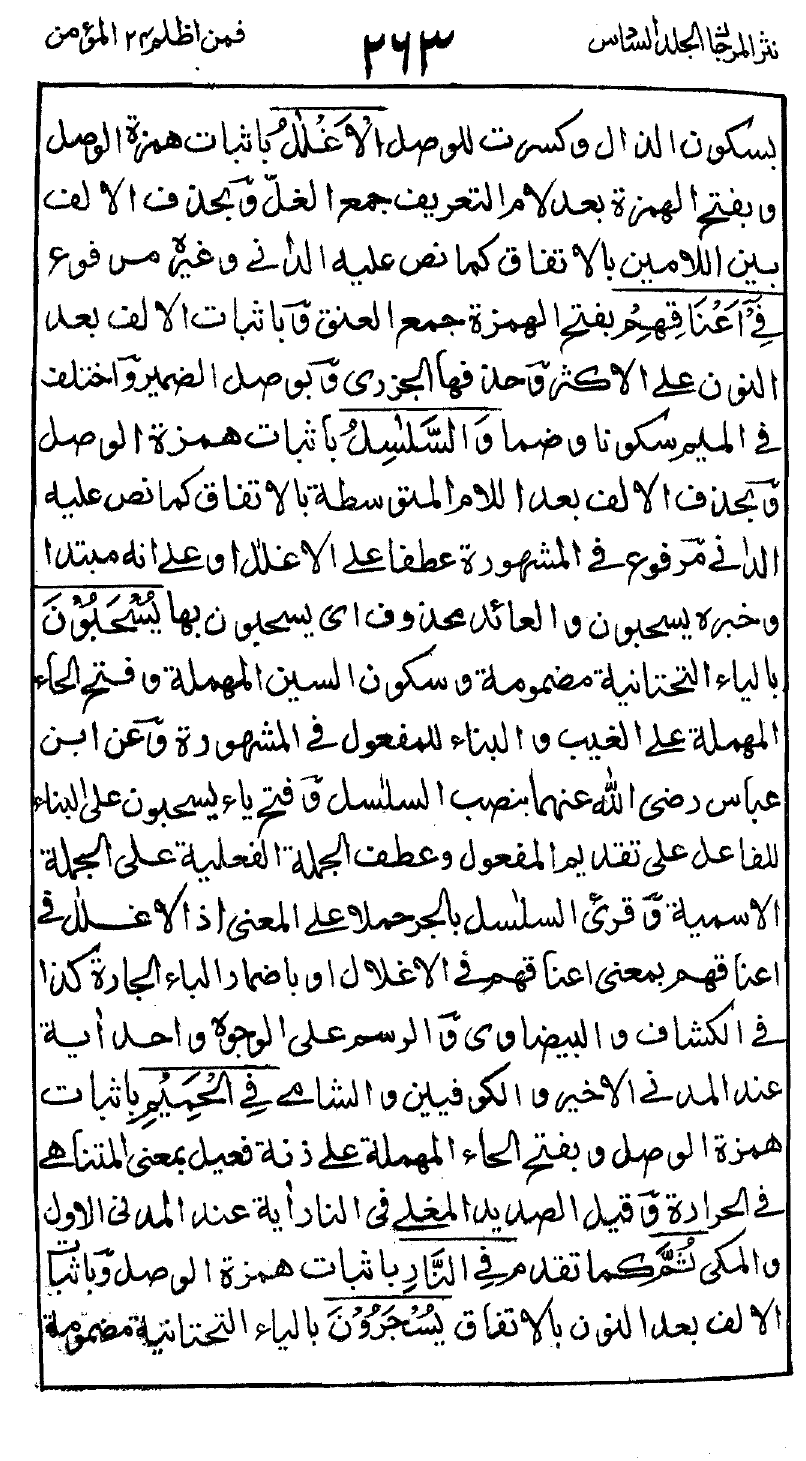 نثر المرجان الجلد السادس ٢٦٣ فمن اظلم ٢٤ المؤمن
بسكون الذال وكسرت للوصل الْاَغْلٰلُ باثبات همزة الوصل
وبفتح الهمزة بعد لام التعريف جمع الغلّ وبحذف الالف
بين اللامين بالاتفاق كما نص عليه الدانى وغيره مرفوع
فِىْٓ اَعْنَاقِهِمْ بفتح الهمزة جمع العنق وباثبات الالف بعد
النون على الاكثر وحذفها الجزرى وبوصل الضمير واختلف
فى الميم سكونا وضما وَالسَّلٰسِلُ باثبات همزة الوصل
وبحذف الالف بعد اللام المتوسطة بالاتفاق كما نص عليه
الدانى مرفوع فى المشهورة عطفا على الاغلٰل او على انه مبتدا
وخبره يسحبون والعائد محذوف اى يسحبون بها يُسْحَبُوْنَ
بالياء التحتانية مضمومة وسكون السين المهملة وفتح الحاء
المهملة على الغيب والبناء للمفعول فى المشهورة وعن ابن
عباس رضى الله عنهما بنصب السلٰسل وفتح ياء يسحبون على البناء
للفاعل على تقديم المفعول وعطف الجملة الفعلية على الجملة
الاسمية وقرئ السلٰسل بالجر حملا على المعنى اذ الاغلٰل فى
اعناقهم بمعنى اعناقهم فى الاغلال او باضمار الباء الجارة كذا
فى الكشاف والبيضاوى والرسم على الوجوه واحد اٰية
عند المدنى الاخير والكوفيين والشامى فِى الْحَمِيْمِ باثبات
همزة الوصل وبفتح الحاء المهملة على زنة فعيل بمعنى المتناهى
فى الحرارة وقيل الصديد المغلى فى النار اٰية عند المدنى الاول
والمكى ثُمَّ كما تقدم فِى النَّارِ باثبات همزة الوصل وباثبات
الالف بعد النون بالاتفاق يُسْجَرُوْنَ بالياء التحتانية مضمومة